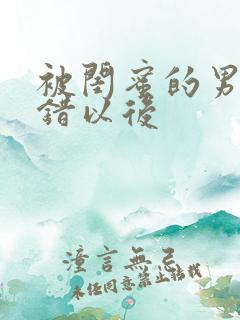 被閨蜜的男
錯以後
潼言無忌
未经同意禁止转载